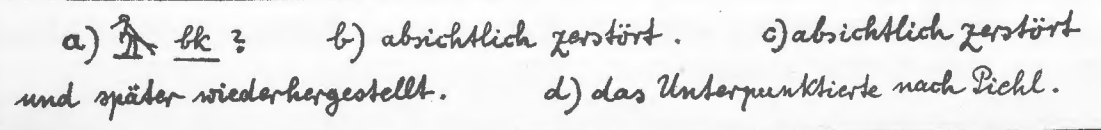 a) bk ? b) absichtlich zerstört. c) absichtlich zerstört
und später wiederhergestellt. d) das Unterpunktierte nach Piehl.